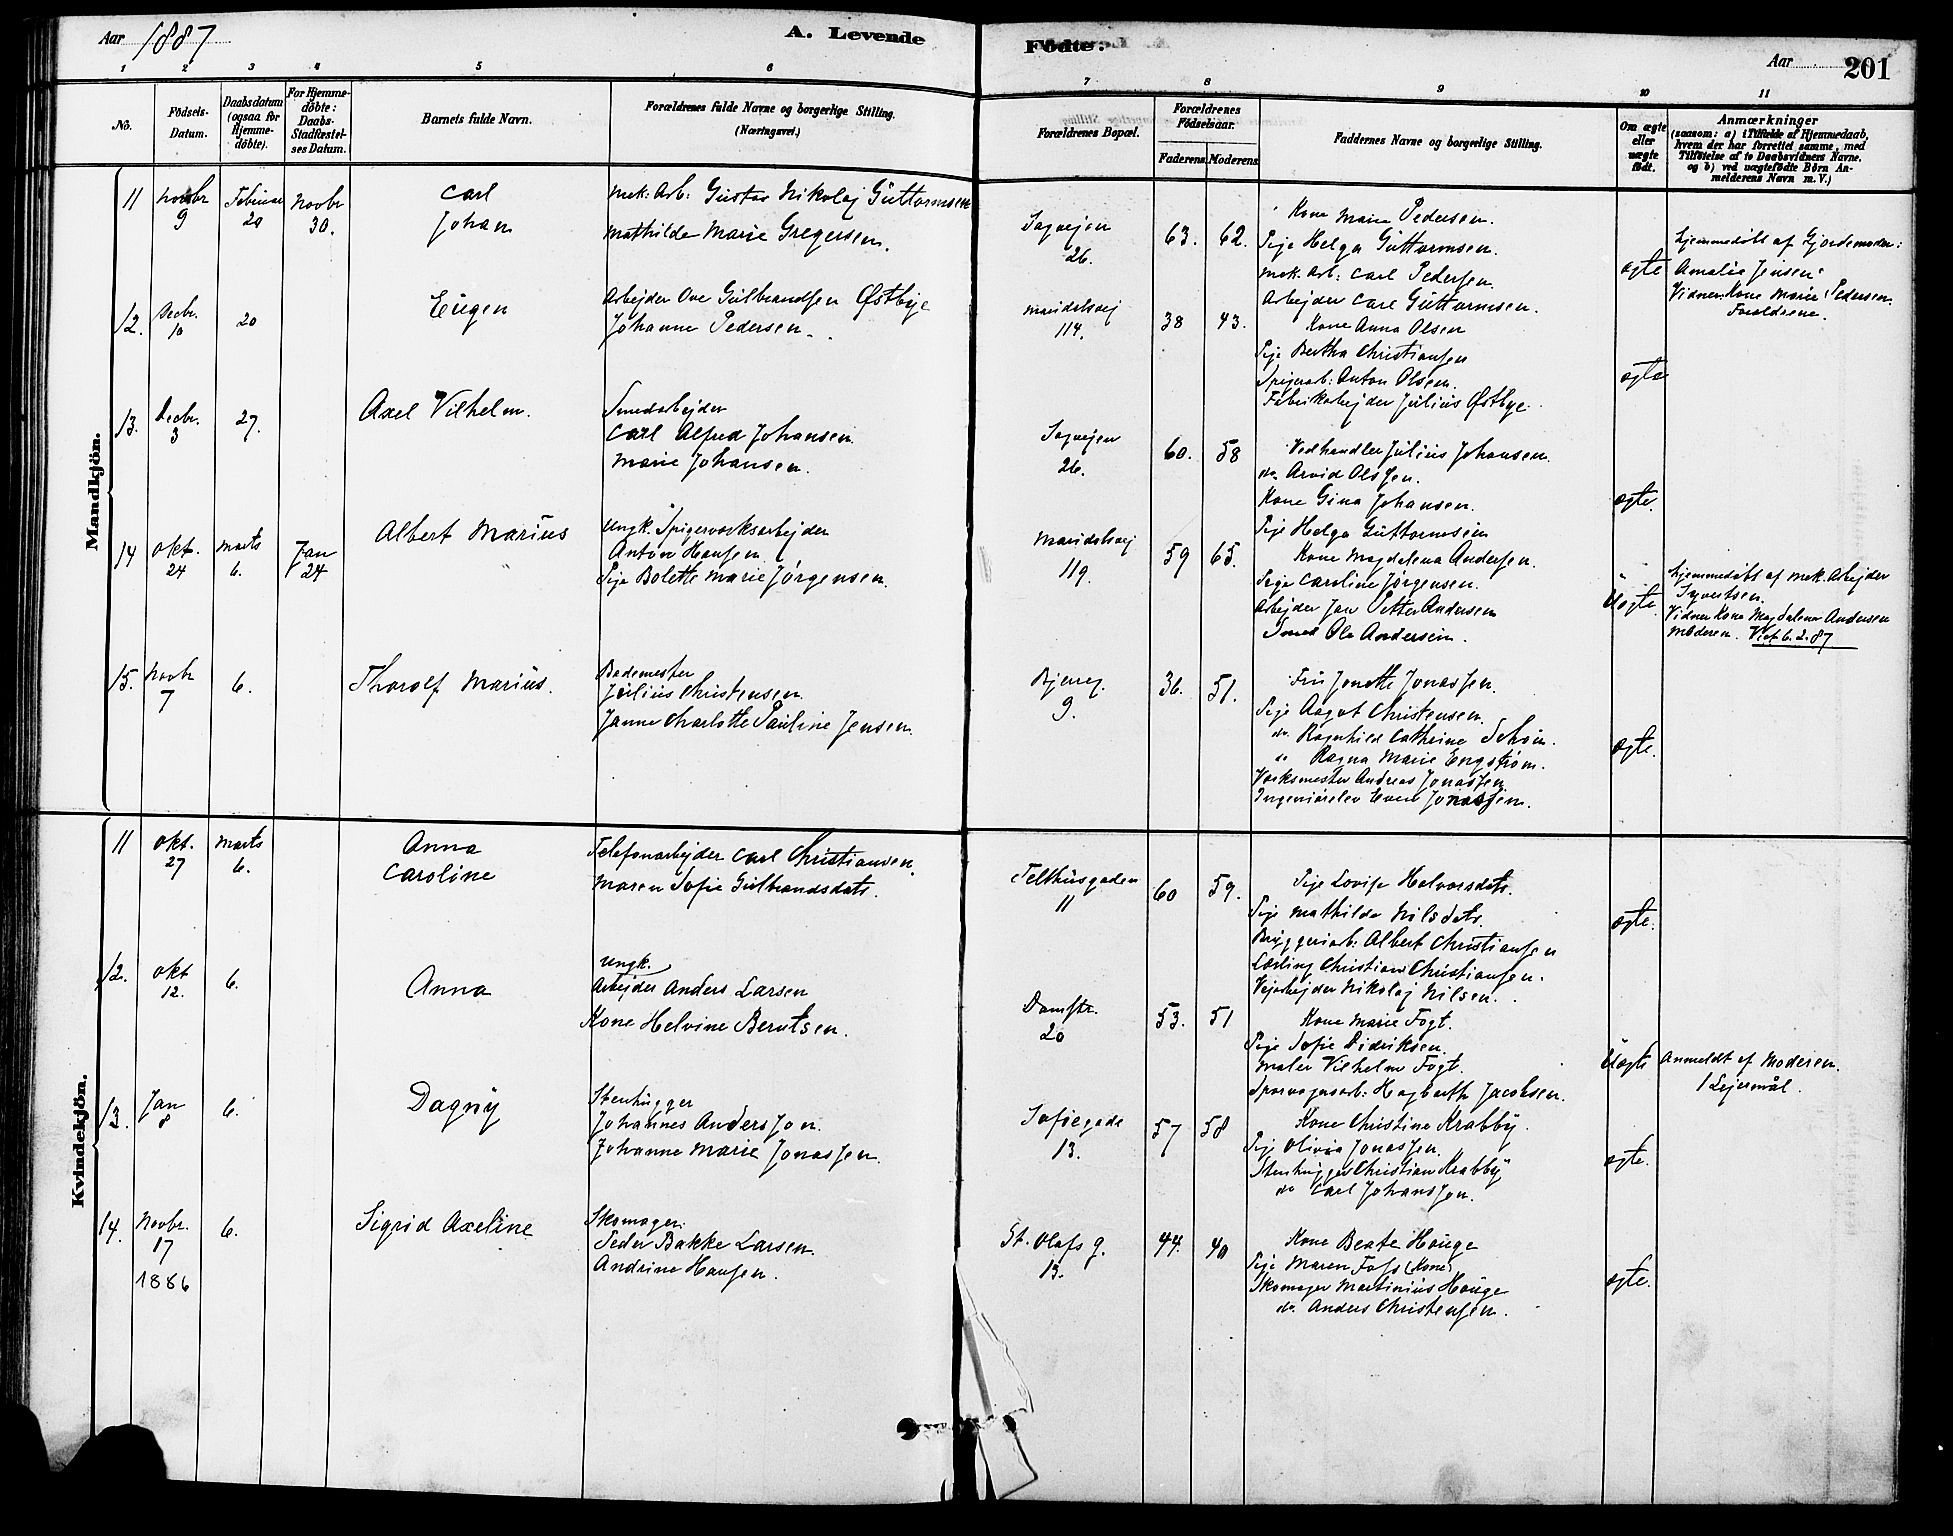 Aar 1887
A. Levende
Födte.
Aar
201
1 2 3 4 5 6 7 8 9 10 11
No.
Födsels-
Datum.
Daabsdatum
(ogsaa for
Hjemme-
döbte).
For Hjemme-
döbte:
Daabs-
Stadfæstel-
ses Datum.
Barnets fulde Navn.
Forældrenes fulde Navne og borgerlige Stilling.
(Næringsvei.)
Forældrenes Bopæl.
Forældrenes
Födselsaar.
Faderens. Moderens.
Faddernes Navne og borgerlige Stilling.
Om ægte
eller
uægte
födt.
Anmærkninger
(saasom: a) i Tilfælde af Hjemmedaab,
hvem der har forrettet samme, med
Tilföielse af to Daabsvidners Navne,
og b) ved uægtefödte Börn An-
melderens Navn m. V.)
Mandkjön.
11 Novbr 9 Februar 20 Novbr 30.
Carl
Johan
Mek: Arb: Gustav Nikolaj Guttormsen
Mathilde Marie Gregersen.
Sagvejen
26.
63. 62.
Kone Marie Pedersen.
Pige Helga Guttormsen.
Mek: Arb: Carl Pedersen.
Arbejder Carl Guttormsen.
ægte
Hjemmedöbt af Gjordemoder:
Amalie Jensen.
Vidner: Kone Marie Pedersen.
Forældrene.
12. Decbr. 10 20
Eugen
Arbejder Ove Gulbrandsen Østbye
Johanne Pedersen.
Maridalsvej
114.
38 43.
Kone Anna Olsen
Pige Bertha Christiansen
Spigerarb: Anton Olsen.
Fabrikarbejder Julius Østbye.
ægte
13. Decbr. 3 27.
Axel Vilhelm.
Smedarbejder
Carl Alfred Johansen.
Marie Johansen.
Sagvejen
26.
60. 58
Vedhandler Julius Johansen.
do. Arvid Olssen.
Kone Gina Johansen.
Pige Helga Guttormsen
ægte.
14 Okt. 24 Marts 6. Jan 24
Albert Marius
Ungk. Spigerverksarbejder
Anton Hansen
Pige Bolette Marie Jörgensen.
Maridalsvej
119.
59 65.
Kone Magdalena Andersen.
Pige Caroline Jörgensen.
Arbejder Jan Petter Andersen
Smed Ole Andersen.
Uægte.
Hjemmedöbt af Mek. Arbejder
Syvertsen.
Vidner Kone Magdalena Andersen
Moderen. Viet 6.2.87
15. Novbr 7 6.
Thorolf Marius.
Bademester
Julius Christensen
Janna Charlotte Pauline Jensen.
Bjerreg.
9.
36. 51.
Fru Jonette Jonassen.
Pige Aagot Christensen.
do. Ragnhild Cathrine Schøn.
do Ragna Marie Engstrøm.
Værksmester Andreas Jonassen.
Ingeniörelev Even Jonassen.
ægte.
Kvindekjön.
11 Okt. 27 Marts 6.
Anna
Caroline
Telefonarbejder Carl Christiansen.
Maren Sofie Gulbrandsdatr.
Telthusgaden
11
60 59.
Pige Lovise Halvorsdatr.
Pige Mathilde Nilsdatr.
Bryggeriarb: Albert Christiansen
Lærling Christian Christiansen.
Vejarbejder Nikolaj Nilsen.
ægte.
12. Okt 12. 6.
Anna
Ungk.
Arbejder Anders Larsen
Kone Helvine Berntsen.
Damstr.
20
53. 51
Kone Marie Fogt.
Pige Sofie Didriksen.
Maler Vilhelm Fogt.
Sporvognsarb: Hagbarth Jacobsen.
Uægte
Anmeldt af Moderen.
1 Lejermål.
13. Jan 8 6.
Dagny
Stenhugger
Johannes Andersson.
Johanne Marie Jonassen.
Sofiegade
13.
57 58
Kone Christine Krabby.
Pige Olivia Jonassen.
Stenhugger Christian Krabby
do Carl Johansson.
ægte.
14. Novbr. 17 1886 6.
Sigrid Axeline
Skomager.
Peder Bakke Larsen
Andrine Hansen.
St. Olafs g.
13.
44. 40
Kone Beate Hauge
Pige Maren Foss (Kone)
Skomager Martinius Hauge
do. Anders Christensen.
ægte.